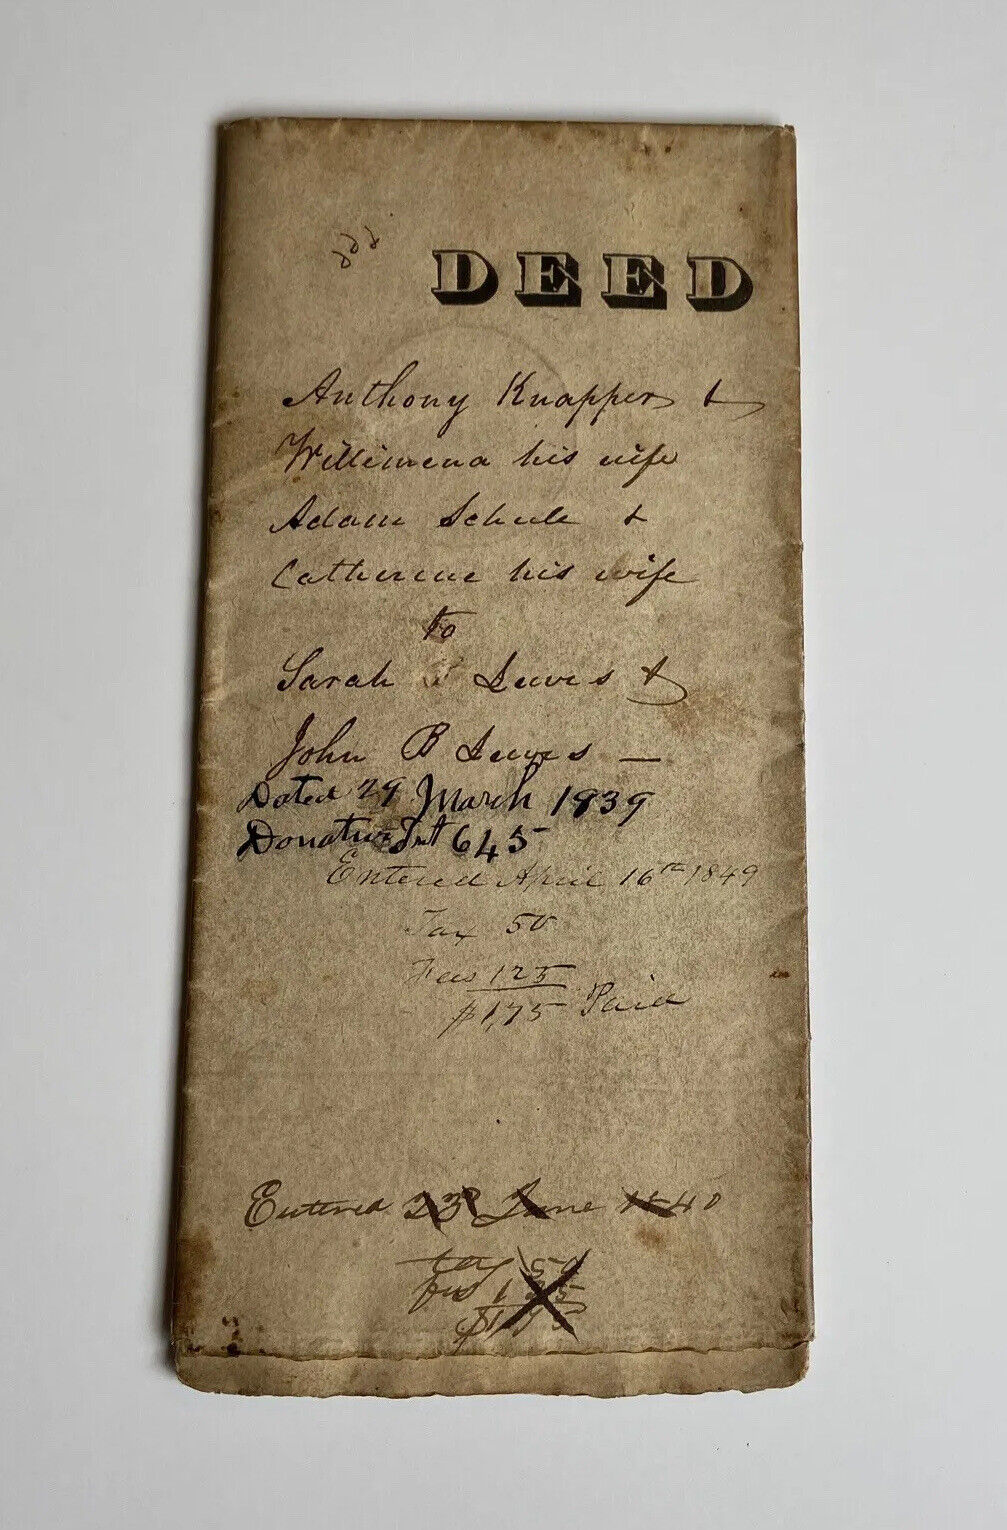 DEED
Anthony Knapper &
Willimena his wife
Adam Schule &
Catherene his wife
to
Sarah &
John B
Dated 29 March 1839
645
Entered April 16th 1849
Tax 50
Fees 125
$1,75 Paid
Entered 23d June 1840
tax 50
fees 1 25
$1,75